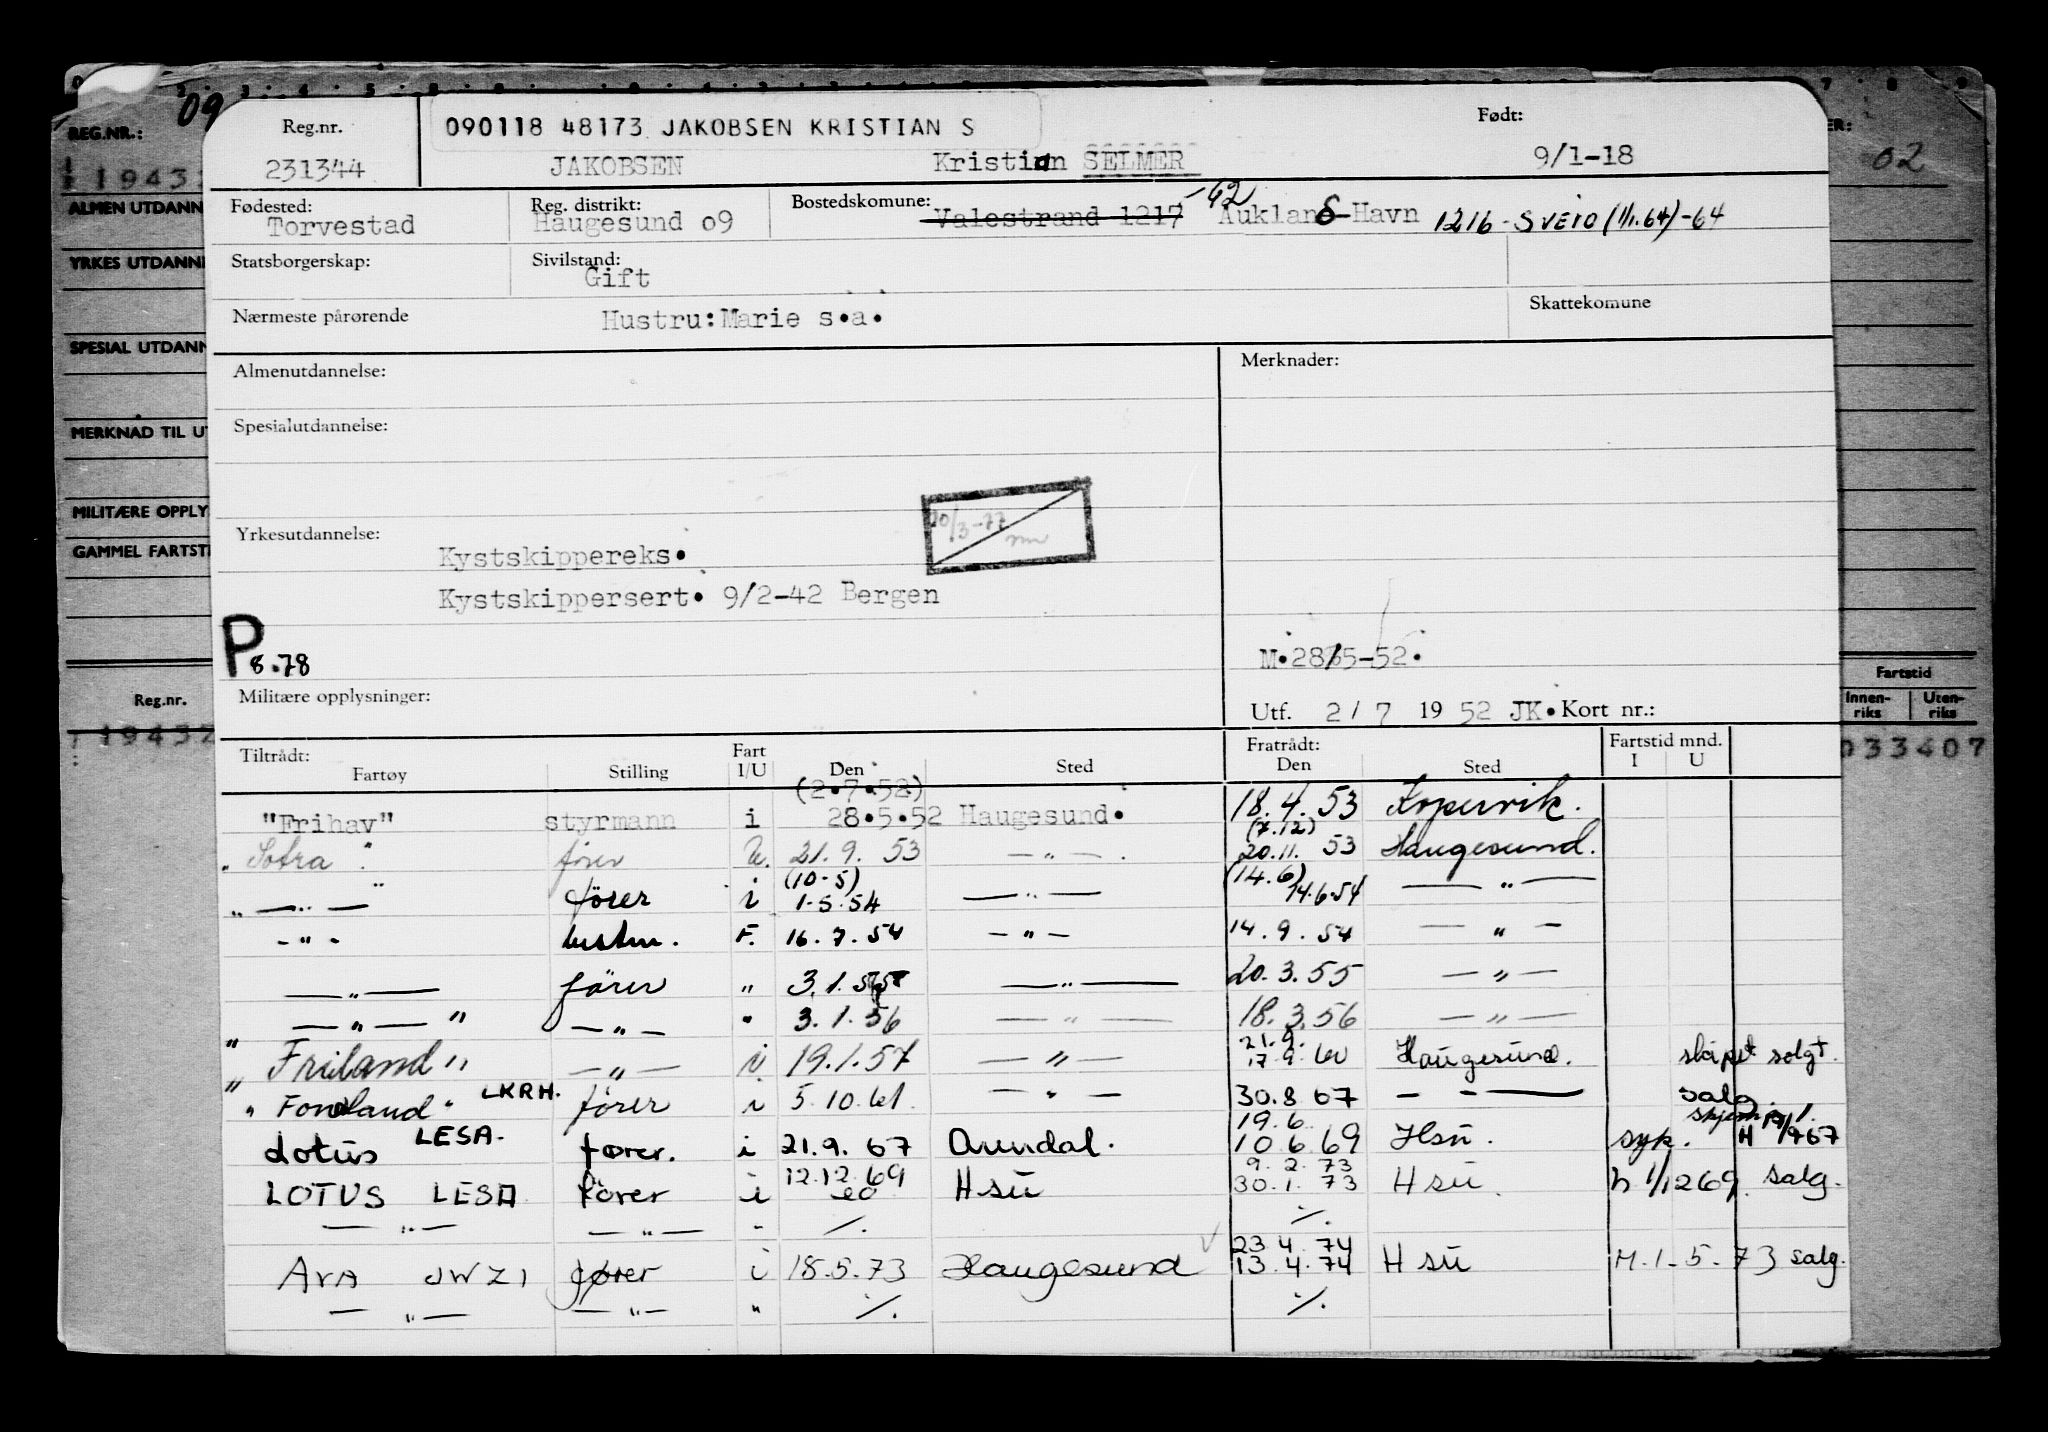 09
REG.NR.:
19432
ALMEN UTDANN
YRKES UTDANN
SPESIAL UTDANN
MERKNAD TIL U
MILITÆRE OPPLY
GAMMEL FARTST
Reg.nr.
19432
02
Fartstid
Innen-riks Uten-riks
033407
Reg.nr. 090118 48173 JAKOBSEN KRISTIAN S Født:
231344 JAKOBSEN Kristian SELMER 9/1-18
Fødested: Reg. distrikt: Bostedskomune: -62
Torvestad Haugesund 09 Valestrand 1217 Aukland S-Havn 1216 - SVEIO (1/1.64)-64
Statsborgerskap: Sivilstand:
Gift
Nærmeste pårørende Hustru: Marie s.a. Skattekomune
Almenutdannelse: Merknader:
Spesialutdannelse:
20/3-77
Yrkesutdannelse:
Kystskippereks.
Kystskippersert. 9/2-42 Bergen
P 8.78
M.28/5-52.
Militære opplysninger: Utf. 2 / 7 19 52 JK. Kort nr.:
Tiltrådt: Fart Fratrådt: Fartstid mnd.
Fartøy Stilling I/U Den Sted Den Sted I U
(2.7.52)
"Frihav" styrmann i 28.5.52 Haugesund. 18.4.53 Kopervik.
(7.12)
"Sotra" fører U. 21.9.53 — " — . 20.11.53 Haugesund.
(10-5) (14.6)
" — " — " fører i 1.5.54 — " — 14.6.54 — " —
- " - F. 16.7.54 — " — 14.9.54 — " —
— " — fører " 3.1.55 — " — 20.3.55 — " —
" — " — " — " — " 3.1.56 — " — 18.3.56 — " —
21.9.
" Friland " — " — i 19.1.57 — " — 17.9.60 Haugesund. skipet solgt.
" Fonnland " LKRH. fører i 5.10.61 — " — 30.8 67 — " — salg
19.6.
Lotus LESA. fører. i 21.9.67 Arendal. 10 6 69 Hsu. syk.
12.12.69 9.2.73
LOTUS LESA fører i Hsu 30.1.73 Hsu. h 1/12 69. salg.
— " — — " — - ./. ./.
23 4 74
AVA JWZI fører i 18.5.73 Haugesund 13.4.74 Hsu M.1-5-73 salg.
— " — — " — " ./. ./.